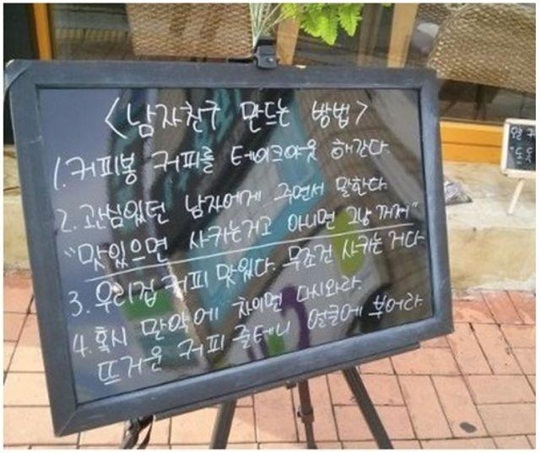 <남자친구 만드는 방법>
1. 커피봉 커피를 테이크아웃 해간다.
2. 관심있던 남자에게 주면서 말한다.
"맛있으면 사귀는거고 아니면 그냥 꺼져"
3. 우리집 커피 맛있다. 무조건 사귀는 거다
4. 혹시 만약에 차이면 다시와라.
뜨거운 커피 줄테니 얼굴에 부어라.